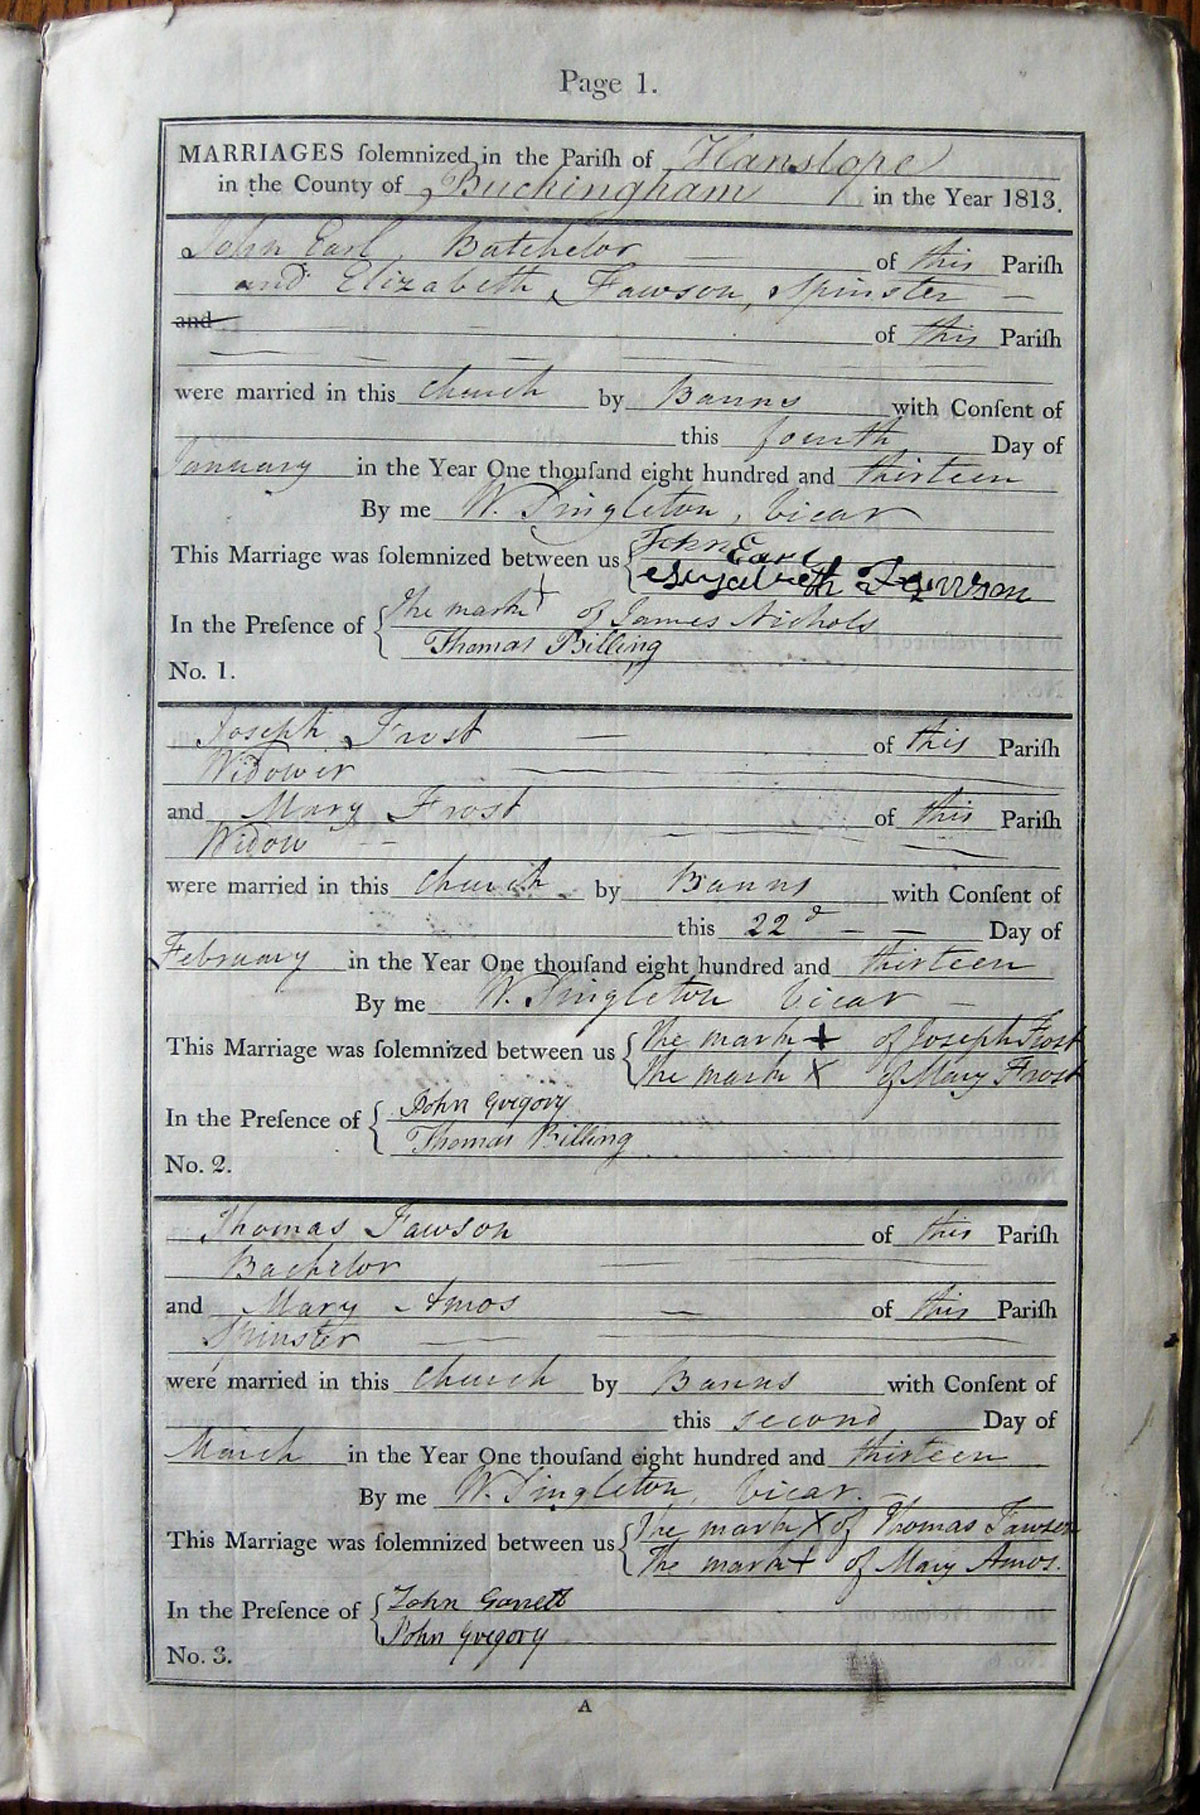 Page 1.
MARRIAGES ſolemnized in the Pariſh of Hanslope
in the County of Buckingham in the Year 1813.
John Earl, Batchelor of this Pariſh
and Elizabeth Fawson, Spinster
and of this Pariſh
were married in this Church by Banns with Conſent of
this fourth Day of
January in the Year One thouſand eight hundred and thirteen
By me W. Singleton, Vicar
This Marriage was ſolemnized between us John Earl
Elizabeth Fawson
In the Preſence of The mark + of James Nichols
Thomas Billing
No. 1.
Joseph Frost of this Pariſh
Widower
and Mary Frost of this Pariſh
Widow
were married in this Church by Banns with Conſent of
this 22d Day of
February in the Year One thouſand eight hundred and thirteen
By me W. Singleton Vicar
This Marriage was ſolemnized between us The mark + of Joseph Frost
The mark X of Mary Frost
In the Preſence of John Gregory
Thomas Billing
No. 2.
Thomas Fawson of this Pariſh
Bachelor
and Mary Amos of this Pariſh
Spinster
were married in this Church by Banns with Conſent of
this second Day of
March in the Year One thouſand eight hundred and thirteen
By me W. Singleton, Vicar.
This Marriage was ſolemnized between us The mark X of Thomas Fawson
The mark + of Mary Amos.
In the Preſence of John Garrett
John Gregory
No. 3.
A